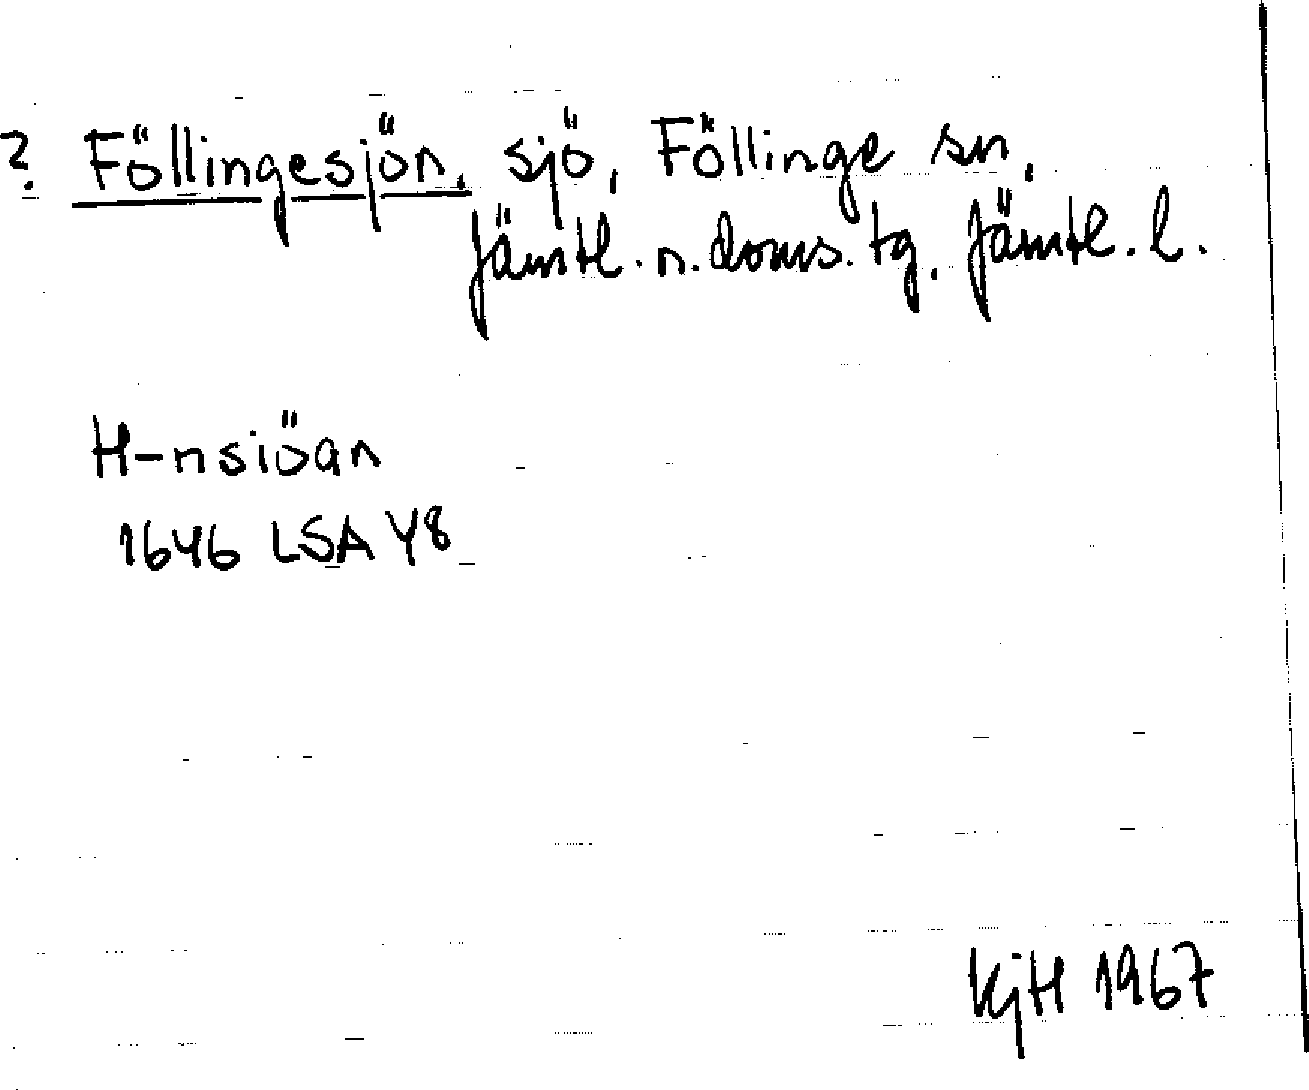 ? Föllingesjön, sjö, Föllinge sn,
Jämtl. n. doms. tg, Jämtl. l.
H-nsiöan
1646 LSA Y8
KjH 1967